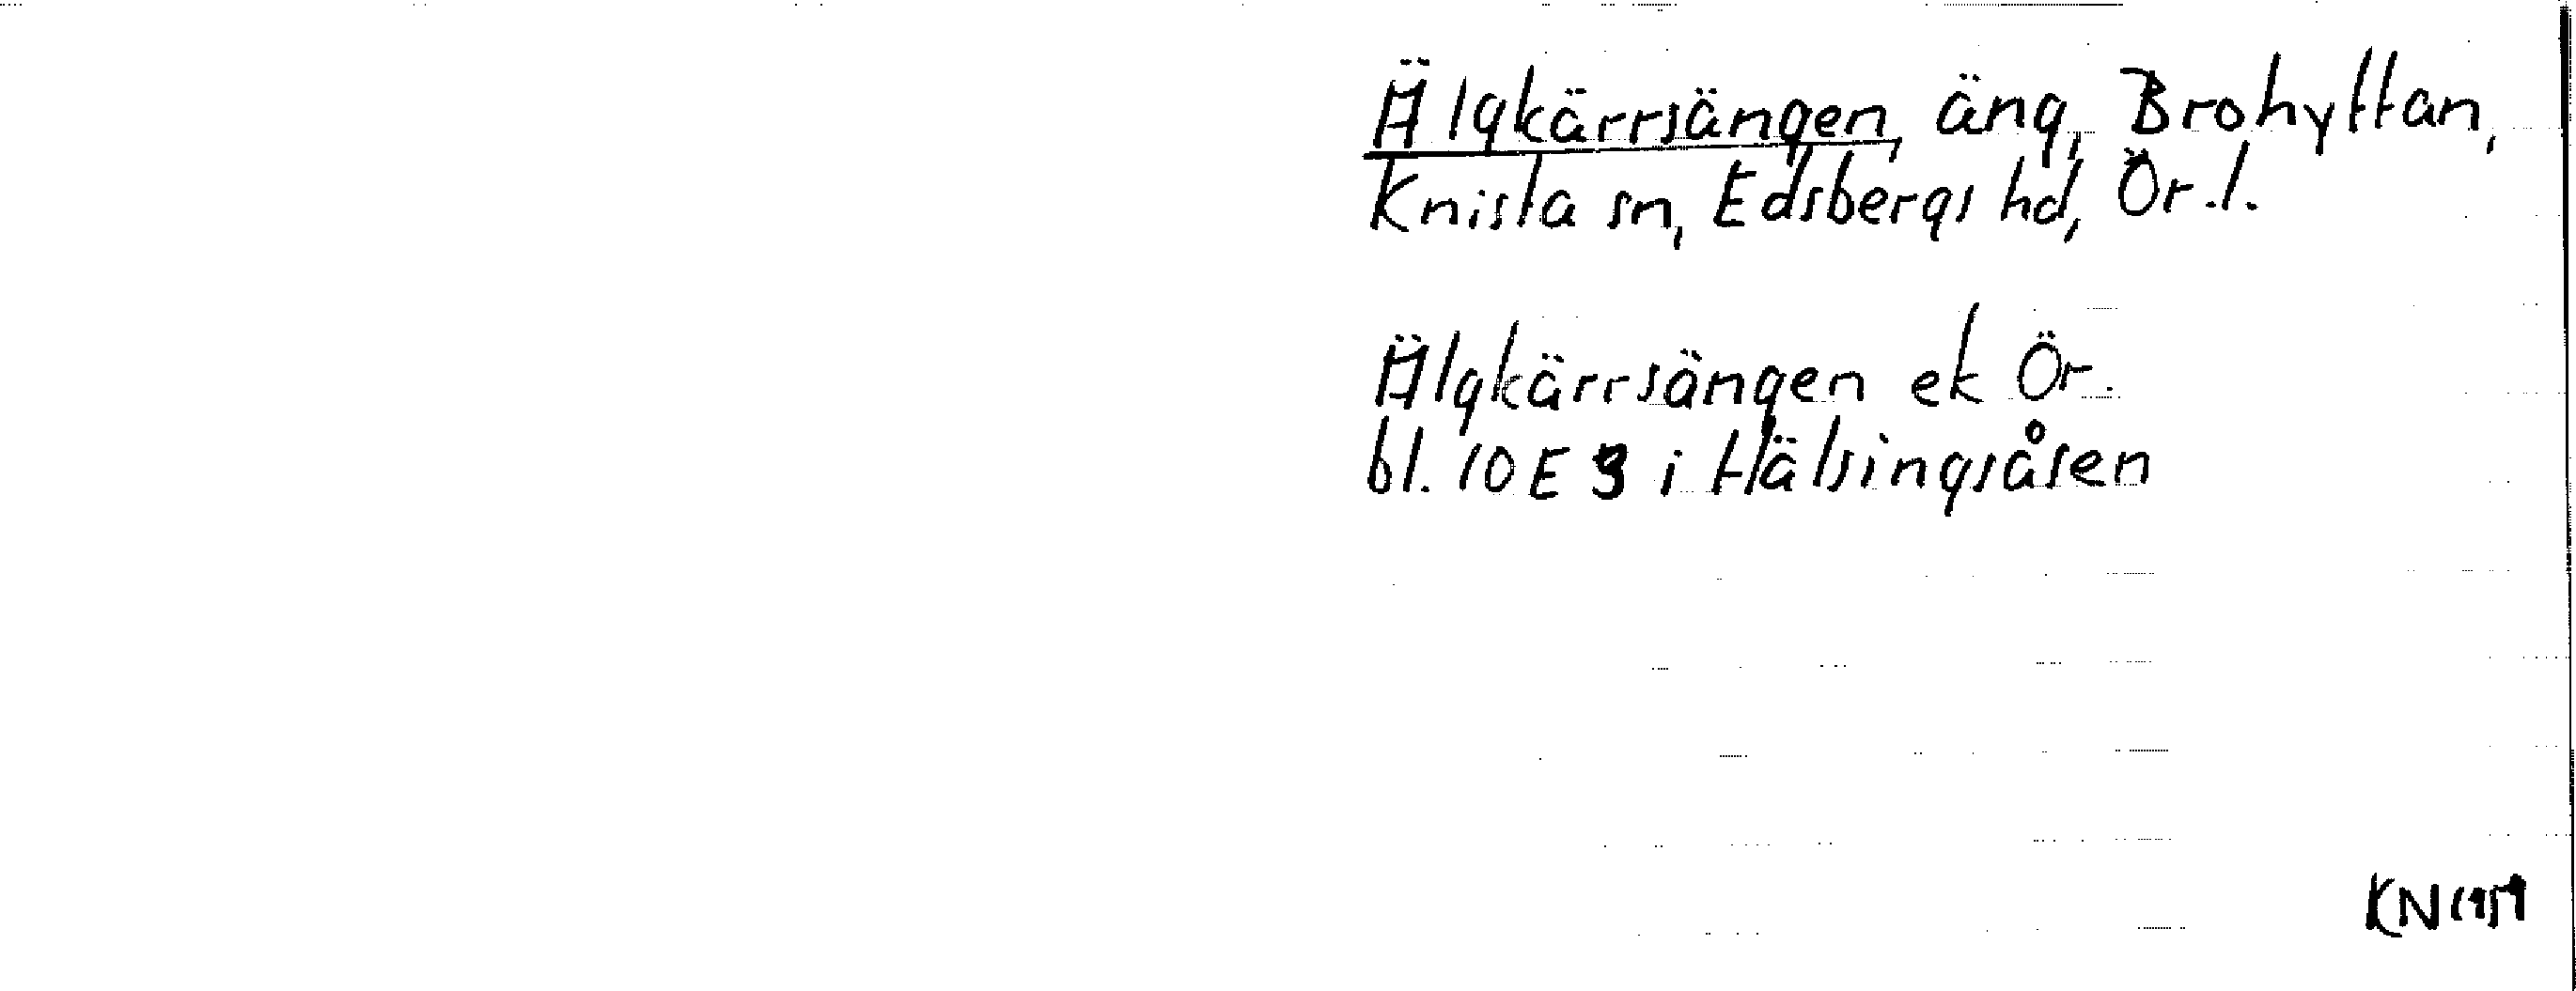 Älgkärrsängen, äng, Brohyttan,
Knista sn, Edsbergs hd, Ör. l.
Älgkärrsängen ek Ör.
bl. 10E 3 i Hälsingsåsen
KN 1959